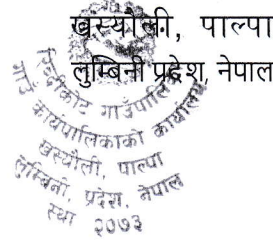 खस्यौली, पाल्पा
लुम्बिनी प्रदेश, नेपाल
गाउँपालिका
गाउँ कार्यपालिकाको कार्यालय
खस्यौली, पाल्पा
लुम्बिनी, प्रदेश, नेपाल
स्था २०७३